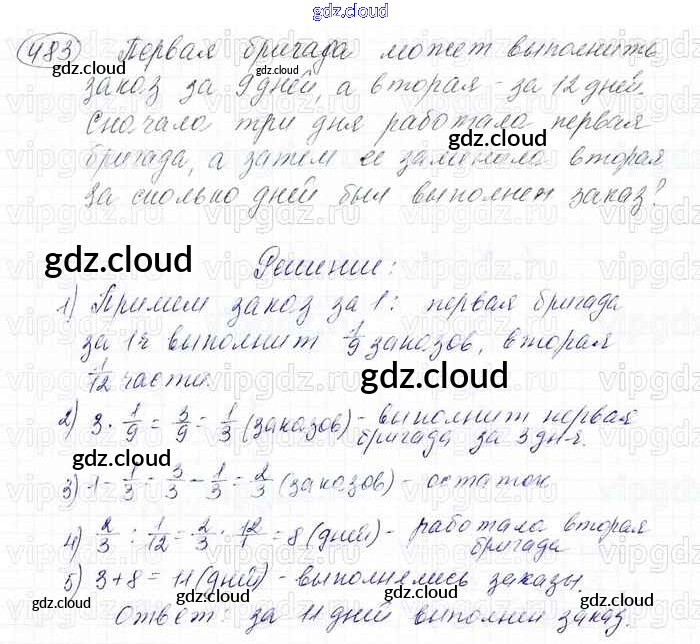 gdz.cloud
483 Первая бригада может выполнить
заказ за 9 дней, а вторая - за 12 дней.
Сначала три дня работала первая
бригада, а затем ее заменила вторая
За сколько дней был выполнен заказ?
gdz.cloud
Решение:
1) Примем заказ за 1: первая бригада
за 1ч выполнит 1/9 заказов, вторая
1/12 части.
gdz.cloud
2) 3 · 1/9 = 3/9 = 1/3 (заказов) - выполнит первая
бригада за 3 дня.
gdz.cloud
3) 1 - 1/3 = 3/3 - 1/3 = 2/3 (заказов) - остаток
4) 2/3 : 1/12 = 2/3 · 12/1 = 8 (дней) - работала вторая
бригада
5) 3 + 8 = 11 (дней) - выполнялись заказы.
gdz.cloud
Ответ: за 11 дней выполнен заказ.